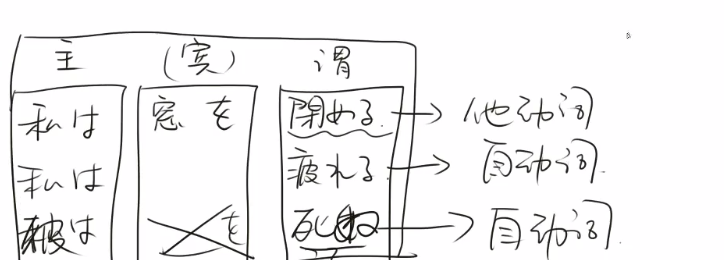 主 (宾) 谓
私は 窓を 閉める → 他动词
私は 疲れる → 自动词.
彼は を 死ぬ → 自动词.